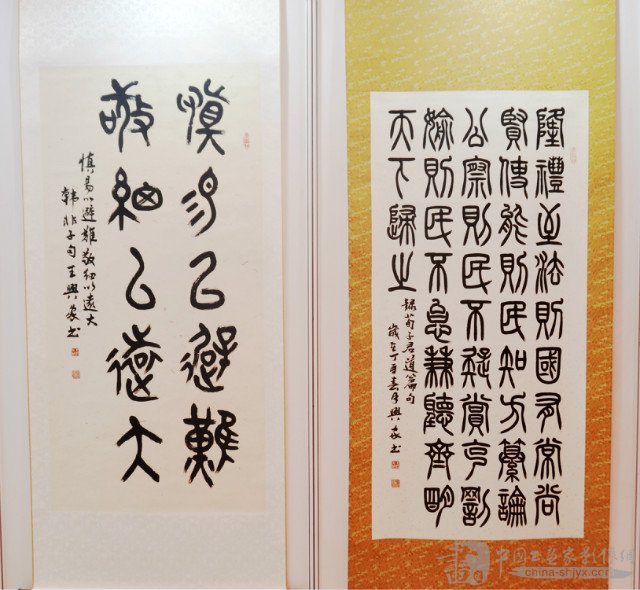 慎易以避難
敬細以遠大
慎易以避難敬細以遠大
韓非子句王興家书
隆禮至法則國有常尚
賢使能則民知方纂論
公察則民不疑賞克罰
媮則民不怠兼聽齊明
天下歸之
録荀子君道篇句
歲在丁酉春月興家书
中国书画家影像网
china-shjyx.com